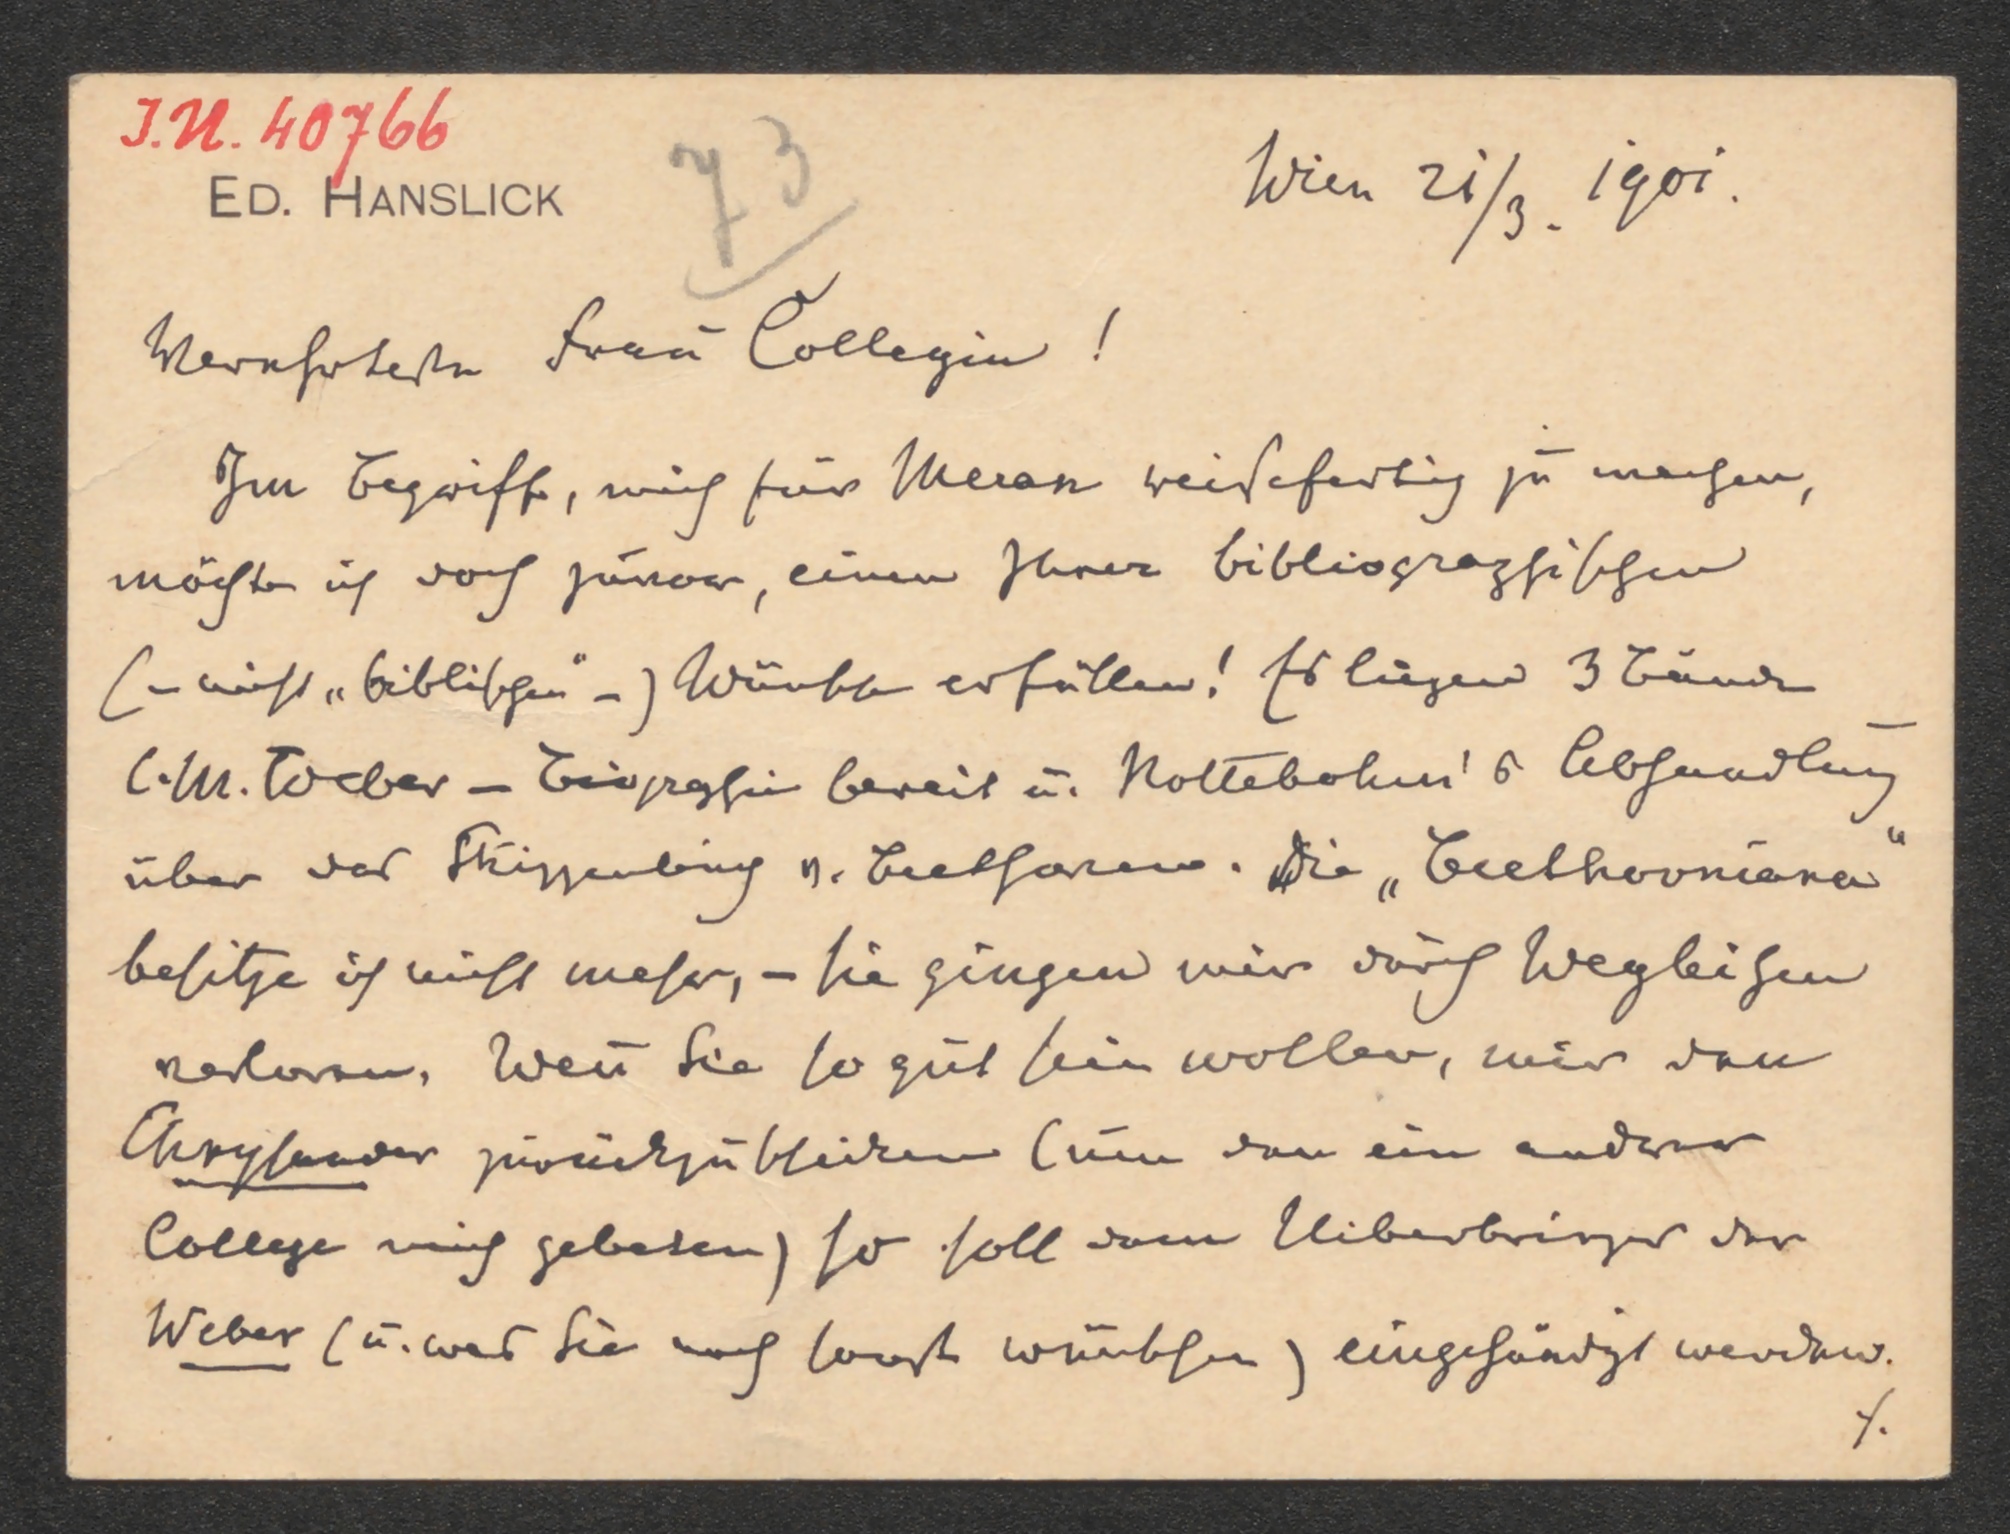 I.N. 40766
73
ED. HANSLICK
Wien 21/3. 1901.
Verehrteste Frau Collegin!
Im Begriffe, mich für Meran reisefertig zu machen,
möchte ich doch zuvor, einen Ihrer bibliographischen
(– nicht „biblischen“ –) Wünsche erfüllen! Es liegen 3 Bände
C. M. Weber – Biographie bereit u. Nottebohm's Abhandlung
über das Skizzenbuch v. Beethoven. Die „Beethovniana“
besitze ich nicht mehr, – sie gingen mir durch Wegleihen
verloren. Wenn Sie so gut sein wollen, mir den
Chrysander zurückzuschicken (um den ein anderer
College mich gebeten) so soll dem Ueberbringer der
Weber (u. was Sie noch sonst wünschen) eingehändigt werden.
./.